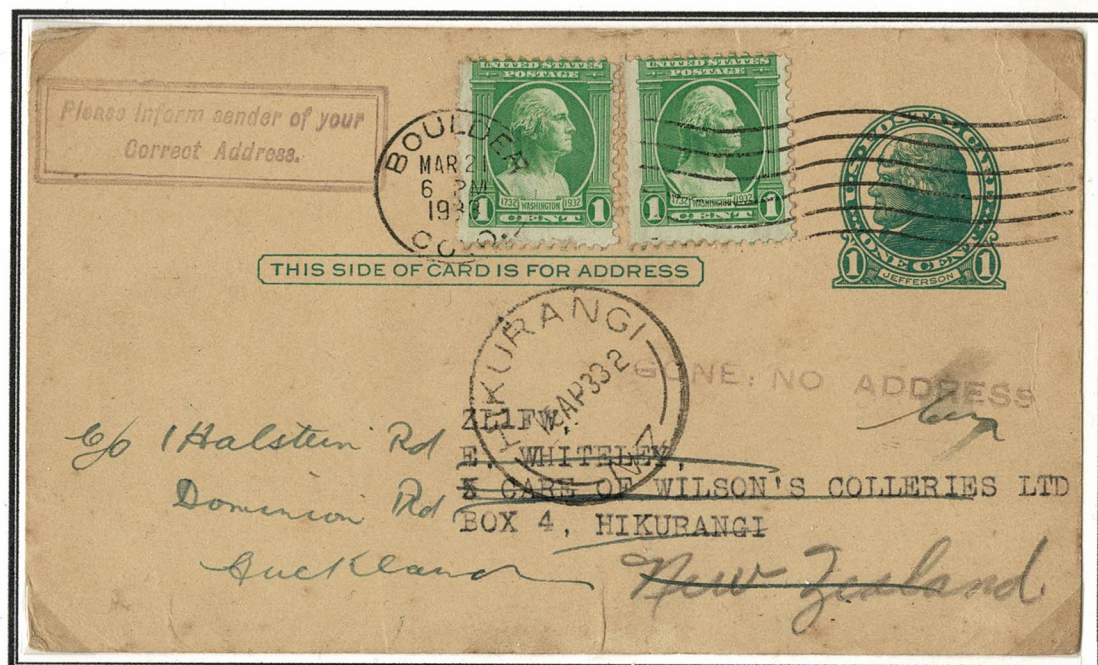 Please Inform sender of your
Correct Address.
BOULDER
MAR 21
6 PM
COLO.
UNITED STATES
POSTAGE
1732 WASHINGTON 1932
1 CENT 1
UNITED STATES
POSTAGE
1732 WASHINGTON 1932
1 CENT 1
U.S. POSTAL CARD
1 ONE CENT 1
JEFFERSON
THIS SIDE OF CARD IS FOR ADDRESS
HIKURANGI
AP 33 2
N.Z
GONE, NO ADDRESS
ZL1FW,
E. WHITELEY,
CARE OF WILSON'S COLLERIES LTD
BOX 4, HIKURANGI
New Zealand
c/o 1 Halstein Rd
Dominion Rd
Auckland